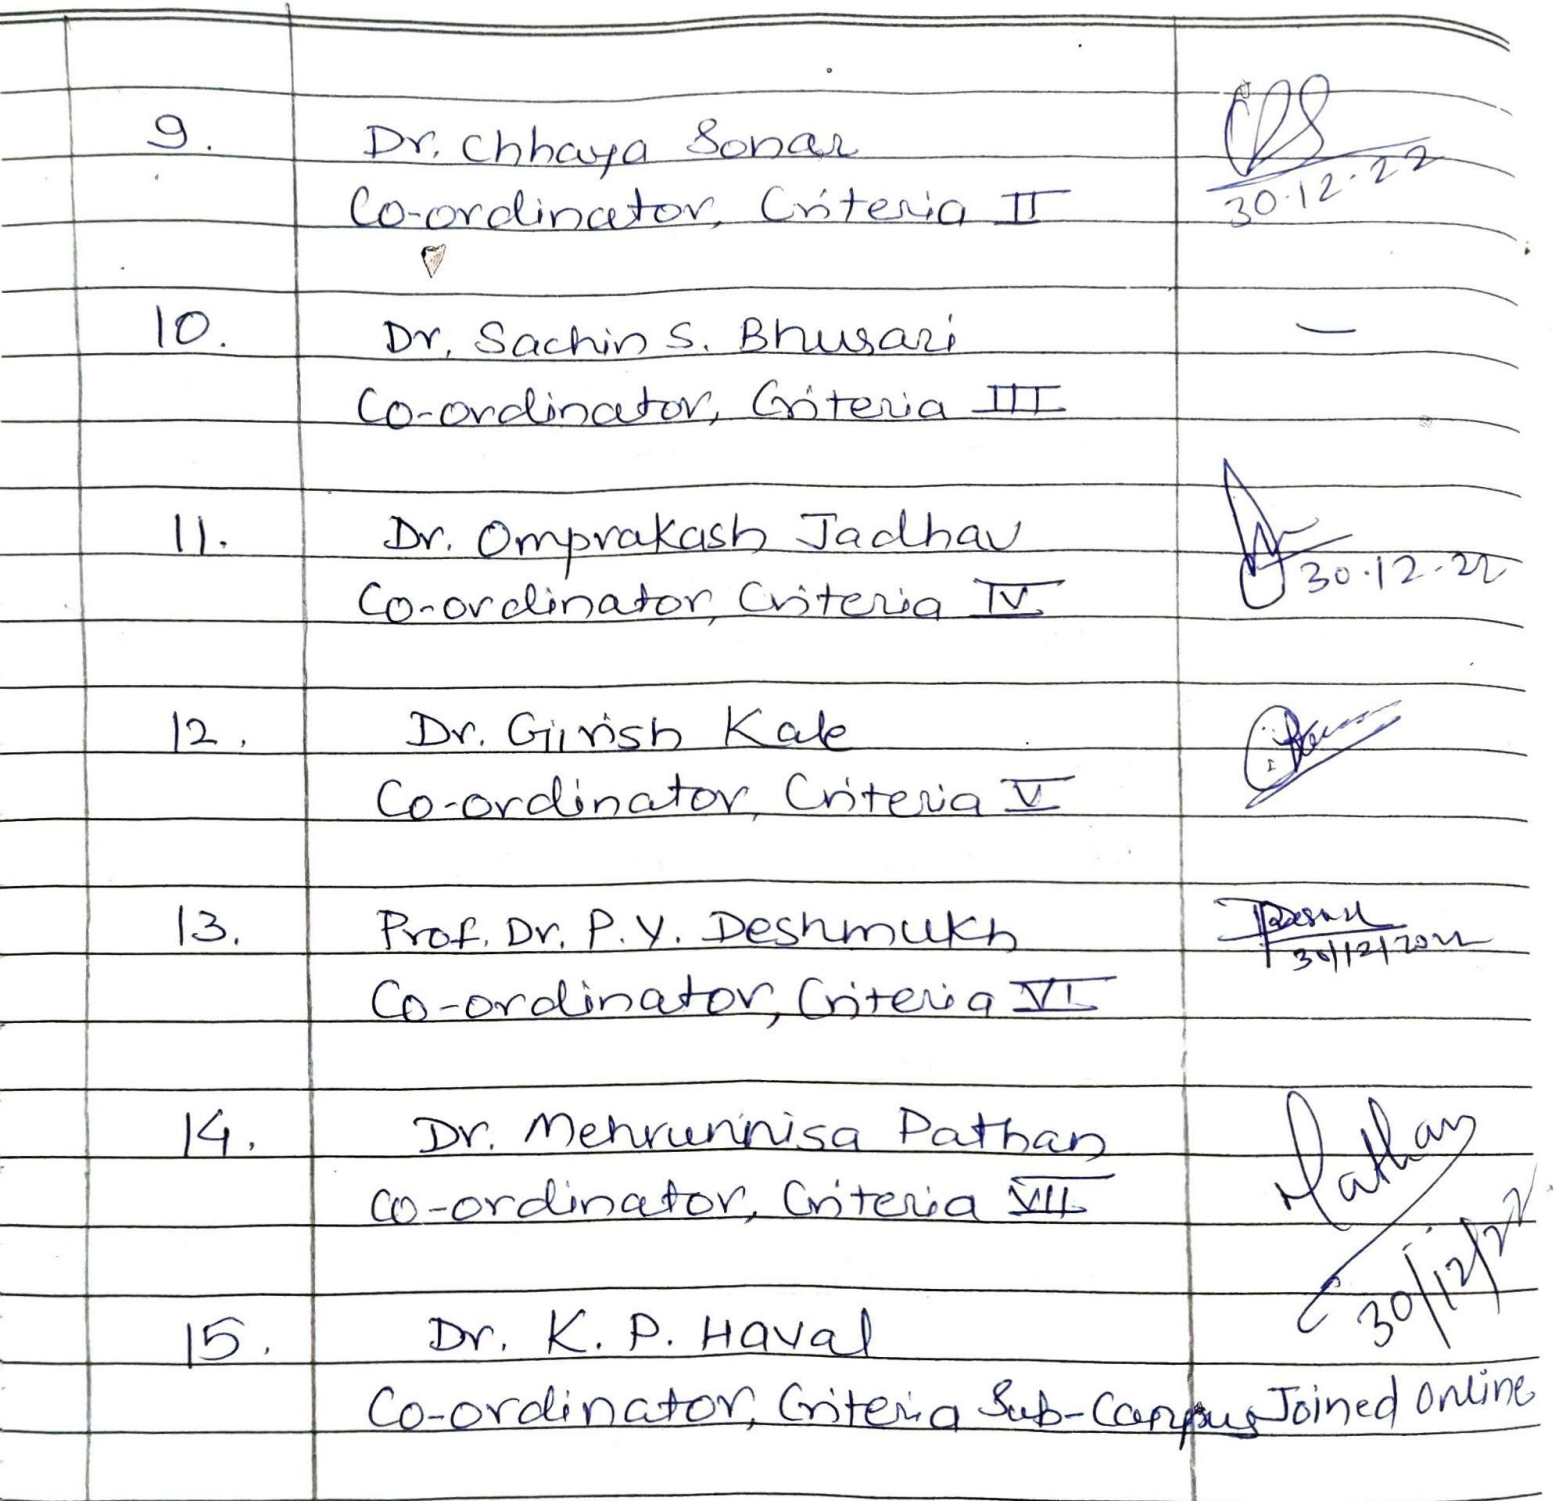 9. Dr. Chhaya Sonar
Co-ordinator, Criteria II
30.12.22
10. Dr. Sachin S. Bhusari —
Co-ordinator, Criteria III
11. Dr. Omprakash Jadhav
30.12.22
Co-ordinator, Criteria IV
12. Dr. Girish Kale
Co-ordinator, Criteria V
13. Prof. Dr. P. Y. Deshmukh
30/12/2022
Co-ordinator, Criteria VI
14. Dr. Mehrunnisa Pathan Pathan
Co-ordinator, Criteria VII
30/12/22
15. Dr. K. P. Haval
Co-ordinator, Criteria Sub-Campus Joined Online